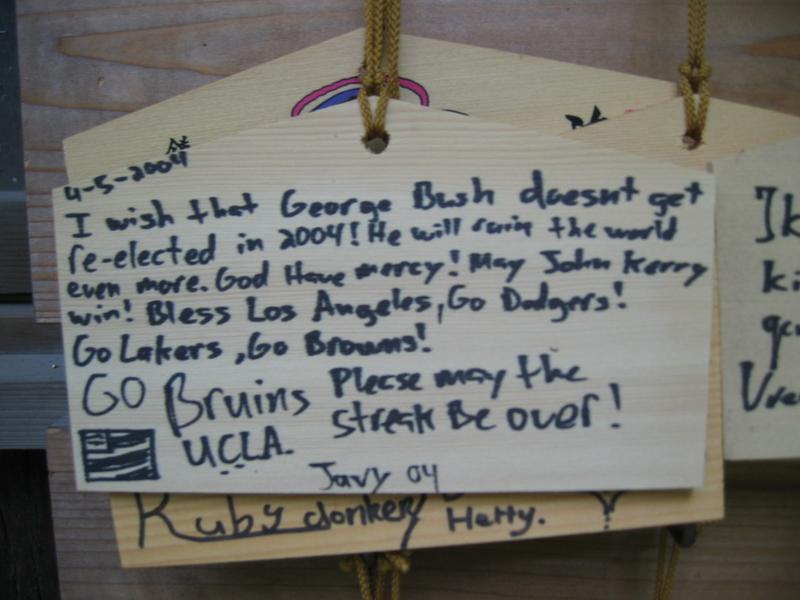 4-5-2004
I wish that George Bush doesnt get
re-elected in 2004! He will ruin the world
even more. God Have mercy! May John Kerry
win! Bless Los Angeles, Go Dodgers!
Go Lakers, Go Browns!
GO Bruins
UCLA.
Please may the
streak Be over!
Javy 04
Ruby donkey Hetty.